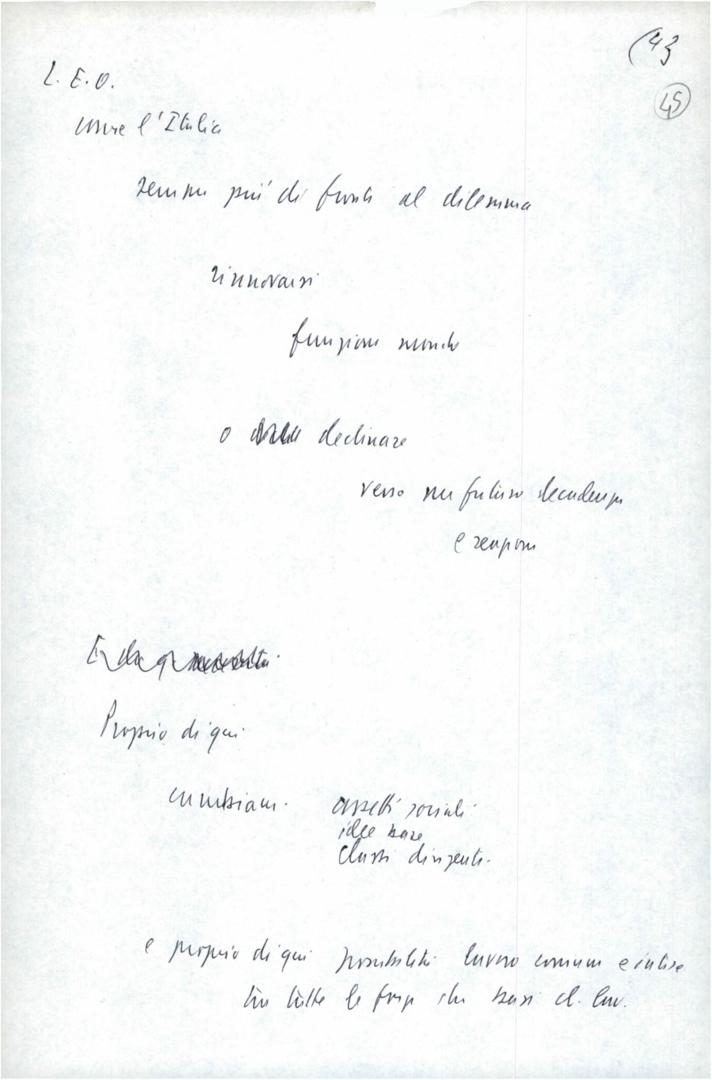 (43
45
L. E. O.
come l'Italia
sempre più di fronte al dilemma
rinnovarsi
funzione mondo
o declinare
verso un futuro decadenza
e
E da q
Proprio di qui
cambiam. assetti sociali
idee base
classi dirigenti.
e proprio di qui possibilità lavoro comune e intese
tra tutte le forze che basi cl. lav.